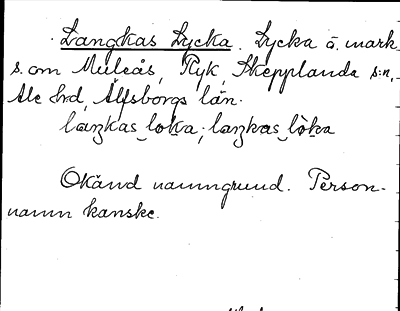 Langkas Lycka. Lycka å mark
s. om Muleås, Ryk, Skepplanda s:n,
Ale hrd, Älfsborgs län.
laŋkas loka; laŋkas lòka
Okänd namngrund. Person-
namn kanske.